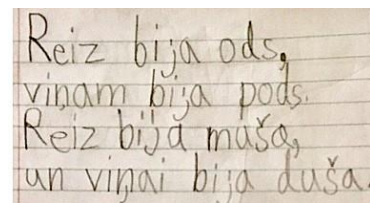 Reiz bija ods,
viņam bija pods.
Reiz bija muša,
un viņai bija duša.